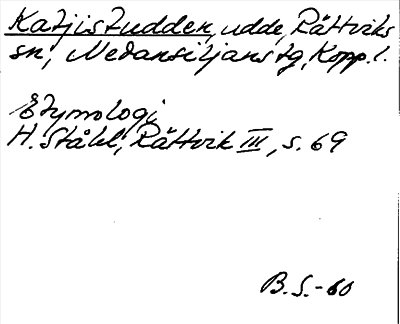 Katjistudden, udde, Rättviks
sn, Nedansiljans tg, Kopp. l.
Etymologi,
H. Ståhl, Rättvik III, s. 69
B. S. -60